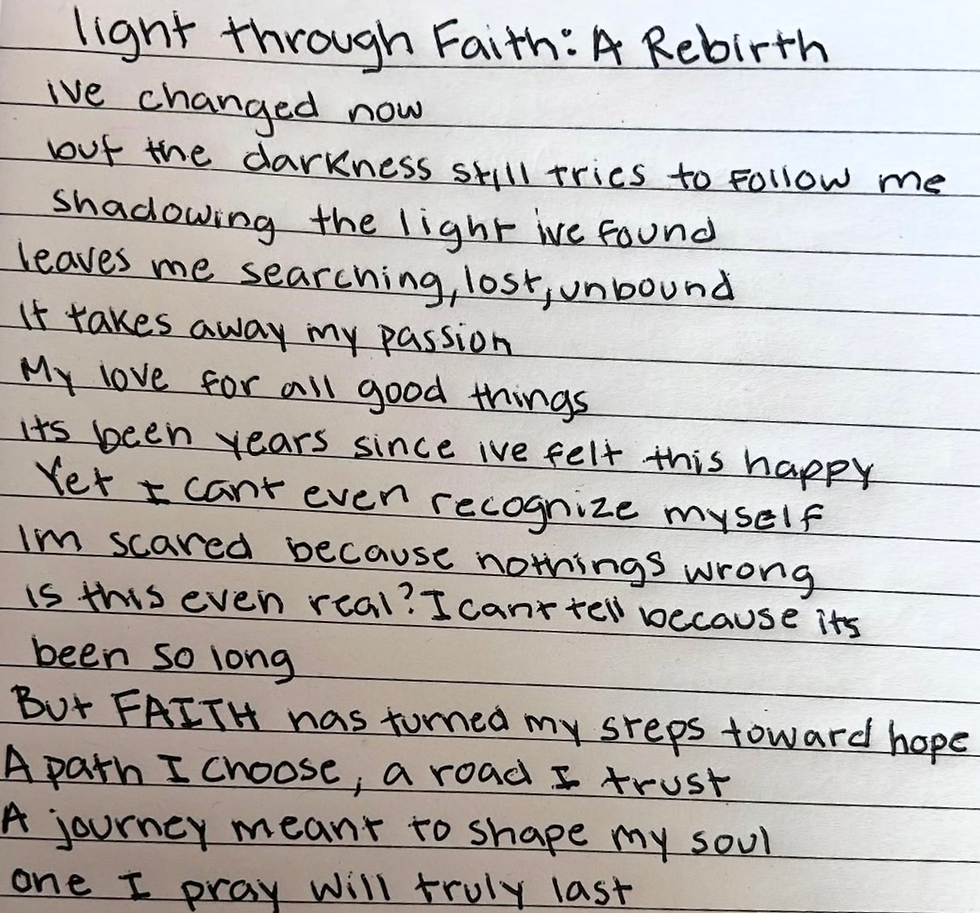 light through Faith: A Rebirth
ive changed now
but the darkness still tries to follow me
shadowing the light ive found
leaves me searching, lost, unbound
It takes away my passion
My love for all good things
its been years since ive felt this happy
Yet I cant even recognize myself
Im scared because nothings wrong
is this even real? I cant tell because its
been so long
But FAITH has turned my steps toward hope
A path I choose, a road I trust
A journey meant to shape my soul
one I pray will truly last